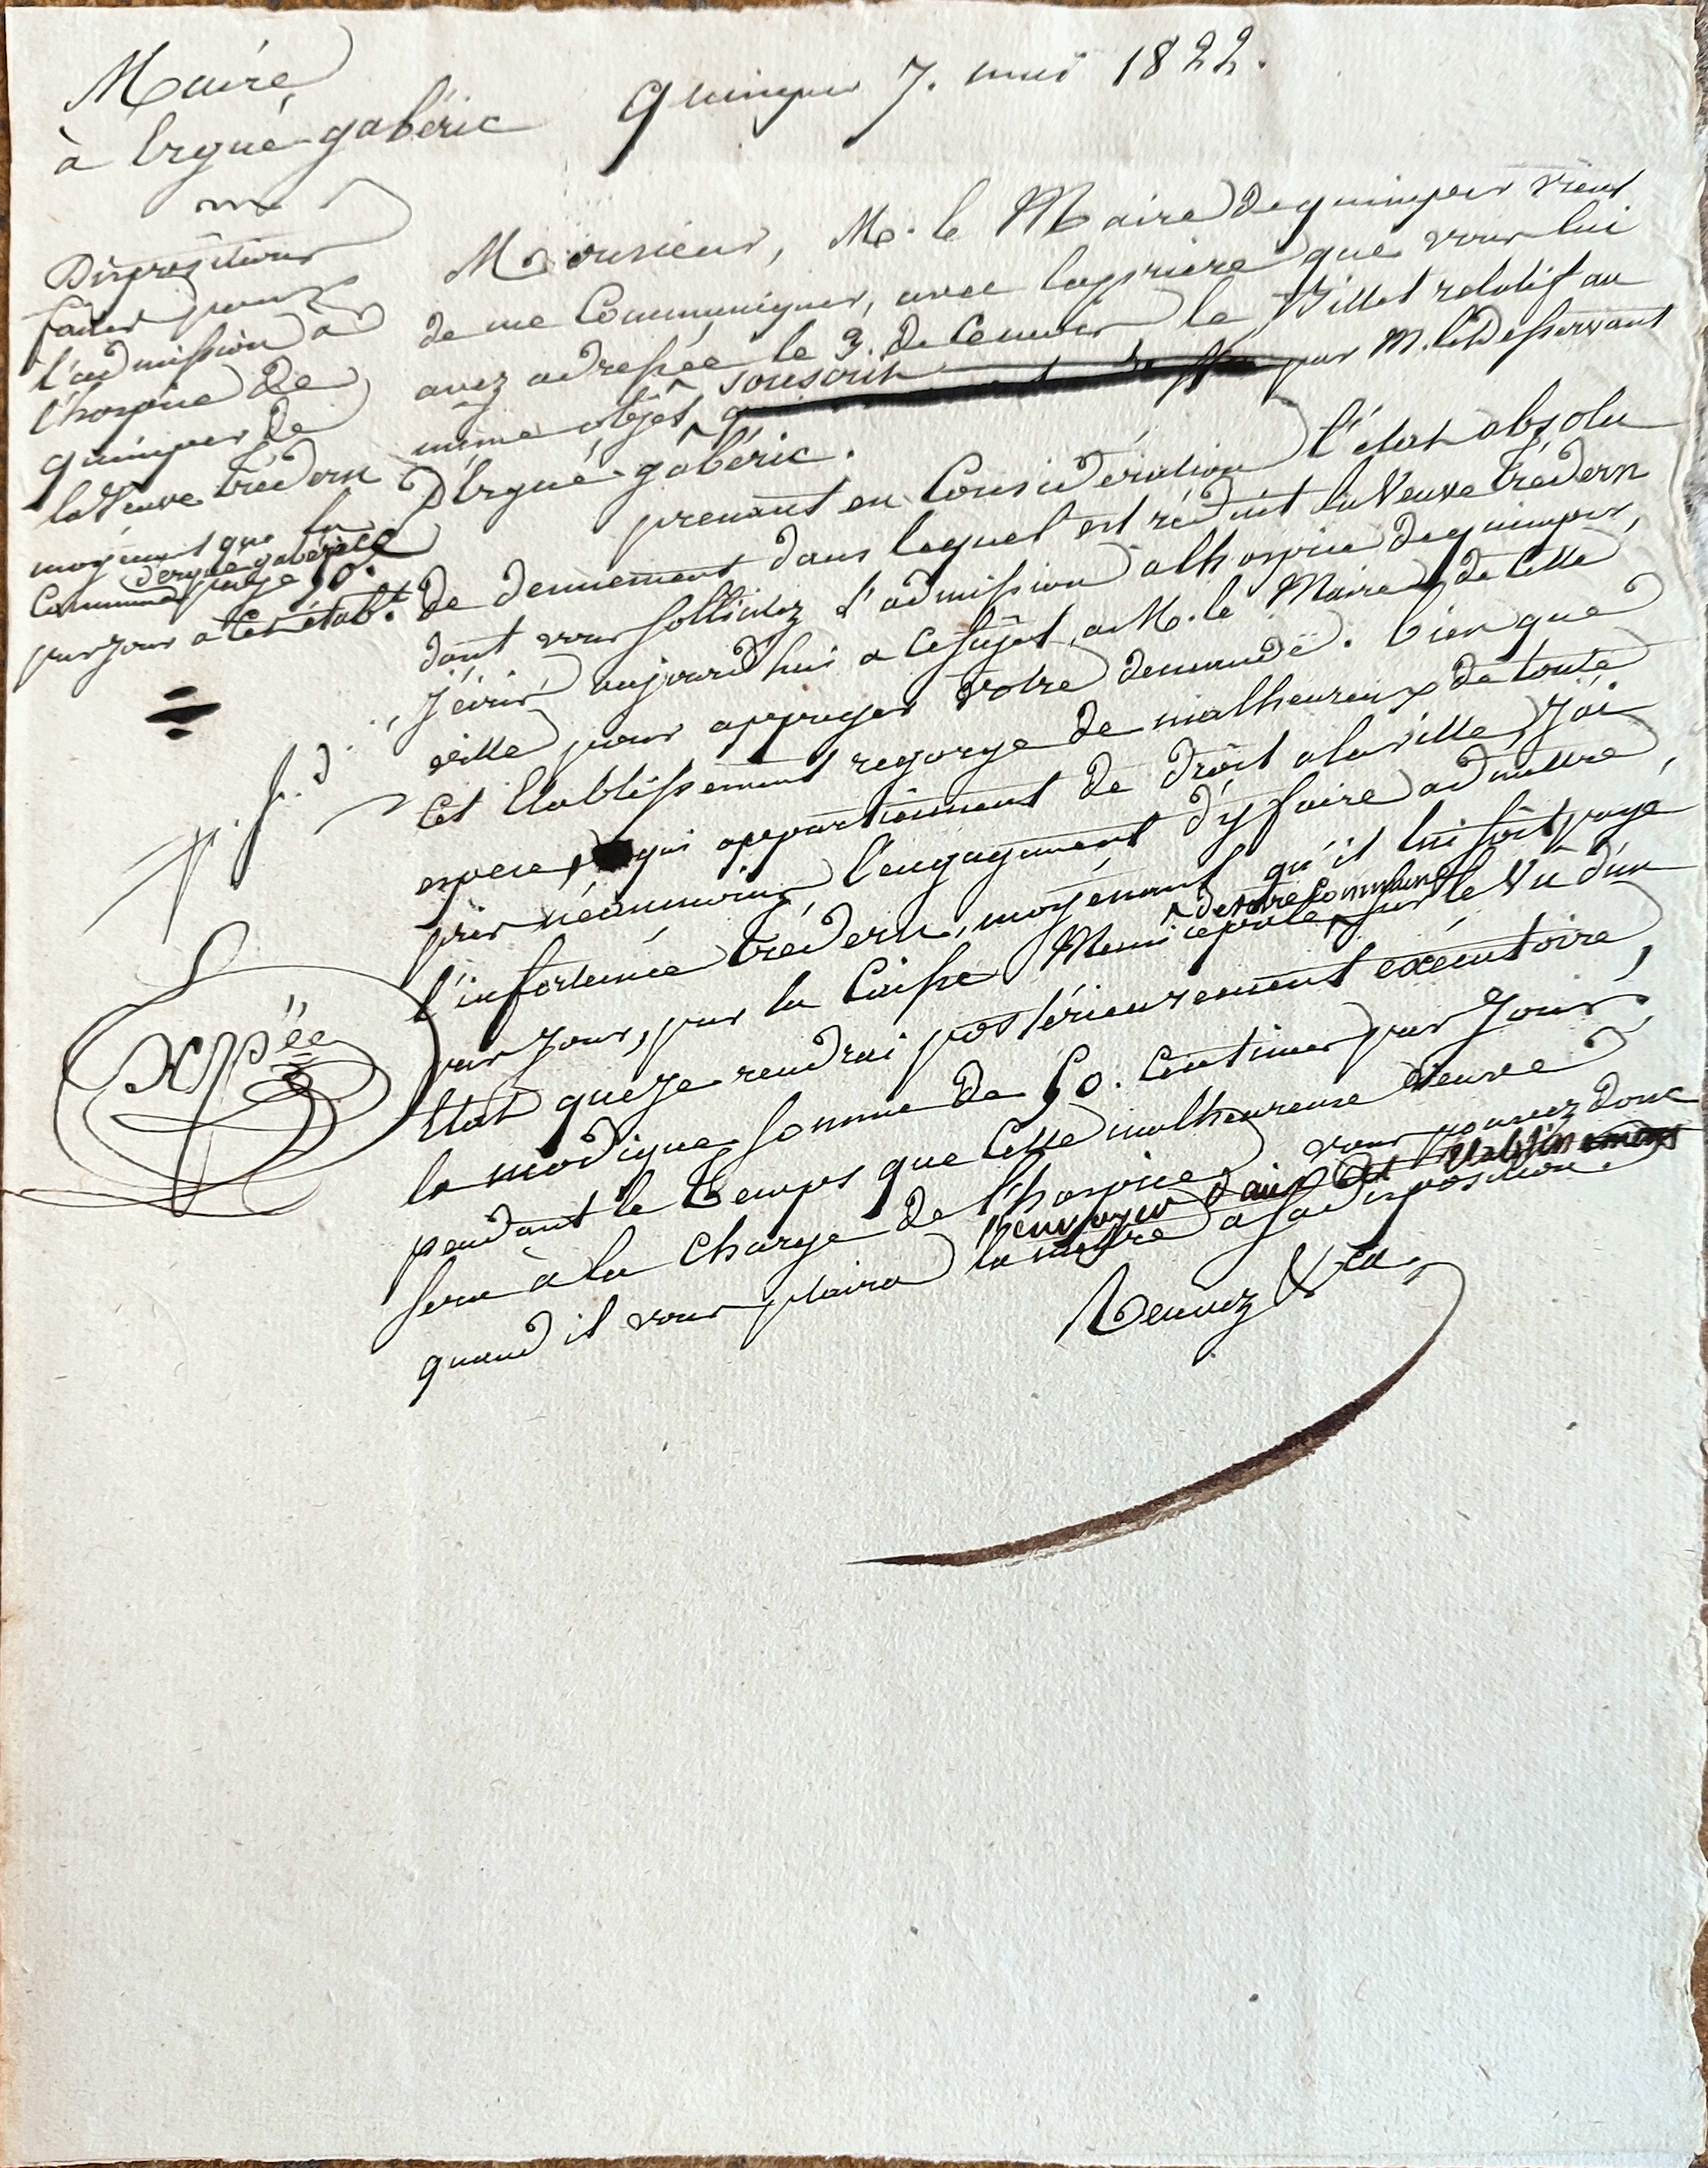 Maire
à Ergué-gabéric
quimper 7. mai 1822.
Dispositions
faites pour
l'admission à
l'hospice de
quimper de
la Veuve trédern
moyénnant que la
Commune d'ergué gabéric
paye 50.c
par jour à Cet étabt.
p. f. d.
Expée
Monsieur, M. le Maire de quimper vient
de me Communiquer, avec la prière que vous lui
avez adressée le 3. de Ce mois le Billet relatif au
même objet, souscrit par M. le Desservant
D'Ergué-gabéric.
prenant en Considération l'état absolu
de dennement dans lequel est réduit la Veuve trédern
dont vous sollicitez l'admission à l'hospice de quimper,
j'écris aujourd'hui a Ce sujet, a M. le Maire de Cette
ville pour appuyer votre demande. bien que
Cet Etablissement regorge de malheureux de toute
espece, qui appartiennent de droit a la ville, j'ai
pris néanmoins l'engagement d'y faire admettre
l'infortunée trédern, moyénnant qu'il lui soit payé
par jour, par la Caisse Municipale de votre Commune, sur le Vu d'un
Etat que je rendrai postérieurement exécutoire,
la modique somme de 50. Centimes par jour,
pendant le temps que Cette malheureuse veuve
sera à la Charge de l'hospice. vous pouvez donc
l'envoyer dans Cet Etablissement
quand il vous plaira la mettre a sa disposition.
Recevez &ca